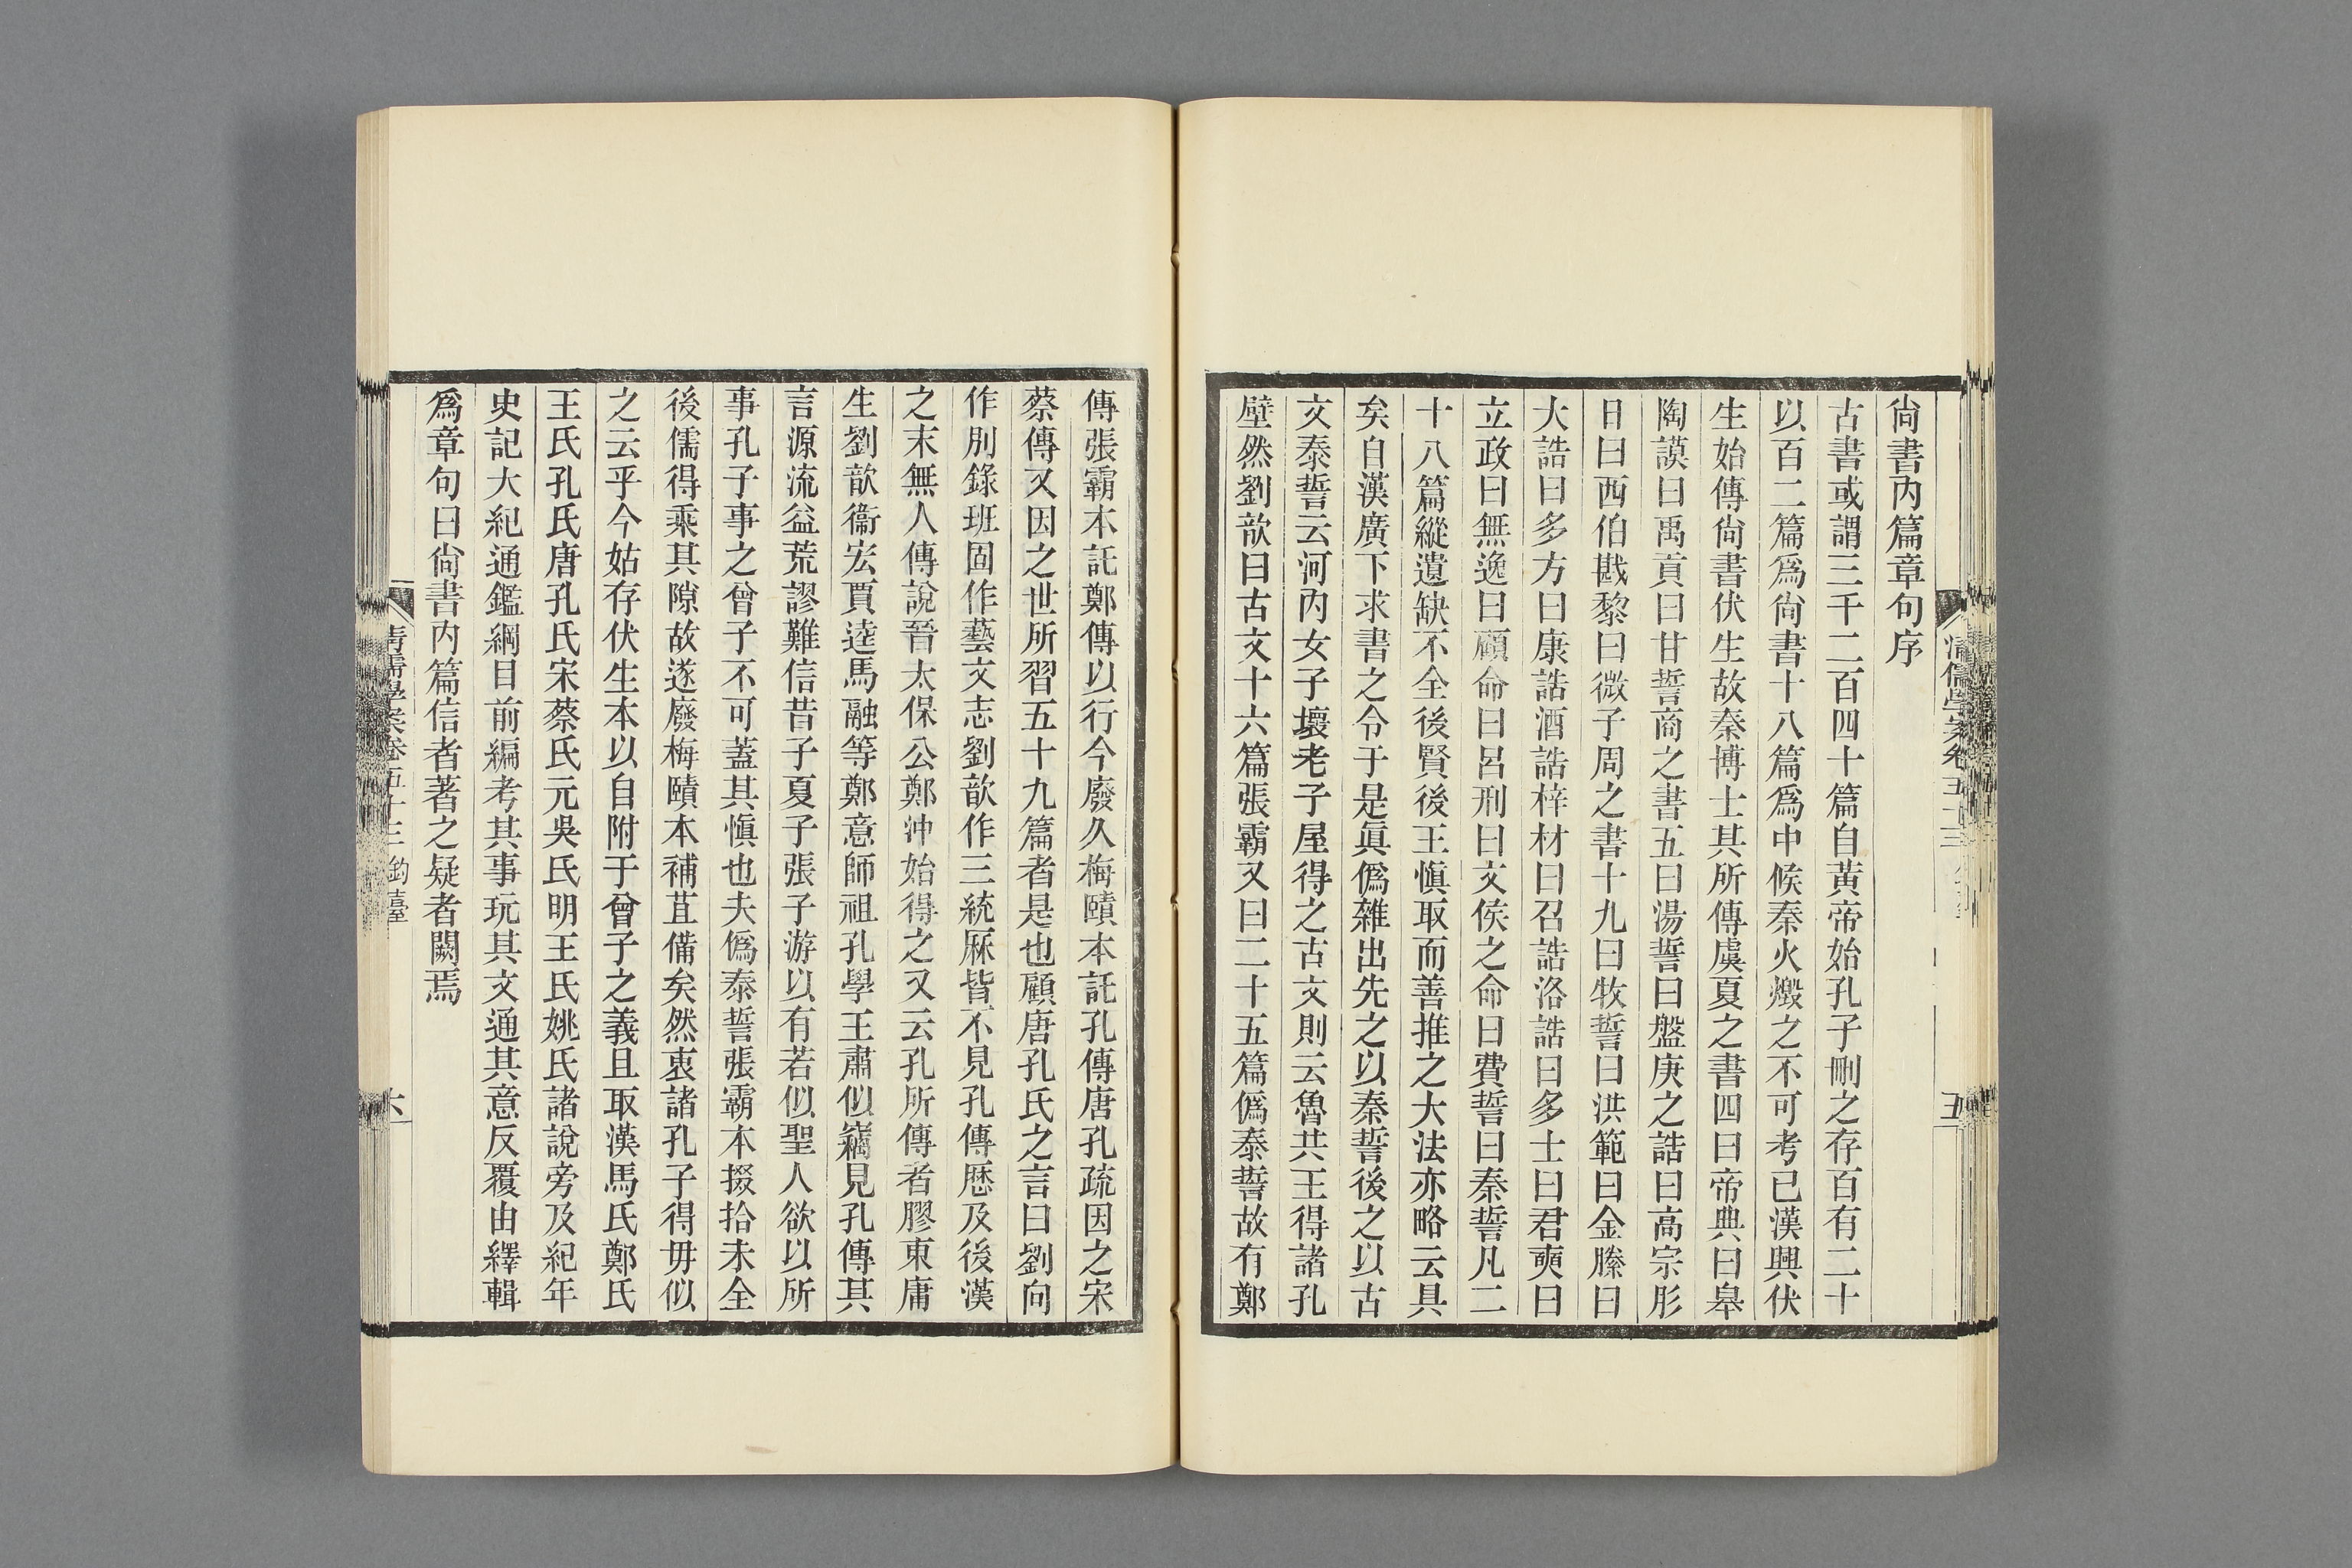 尙書內篇章句序
古書或謂三千二百四十篇自黃帝始孔子刪之存百有二十
以百二篇爲尙書十八篇爲中候秦火燬之不可考已漢興伏
生始傳尙書伏生故秦博士其所傳虞夏之書四曰帝典曰皋
陶謨曰禹貢曰甘誓商之書五曰湯誓曰盤庚之誥曰高宗肜
日曰西伯戡黎曰微子周之書十九曰牧誓曰洪範曰金縢曰
大誥曰多方曰康誥酒誥梓材曰召誥洛誥曰多士曰君奭曰
立政曰無逸曰顧命曰呂刑曰文侯之命曰費誓曰秦誓凡二
十八篇縱遺缺不全後賢後王愼取而善推之大法亦略云具
矣自漢廣下求書之令于是眞僞雜出先之以秦誓後之以古
文泰誓云河內女子壞老子屋得之古文則云魯共王得諸孔
壁然劉歆曰古文十六篇張霸又曰二十五篇僞泰誓故有鄭
傳張霸本託鄭傳以行今廢久梅賾本託孔傳唐孔疏因之宋
蔡傳又因之世所習五十九篇者是也顧唐孔氏之言曰劉向
作別錄班固作藝文志劉歆作三統厤皆不見孔傳歷及後漢
之末無人傳說晉太保公鄭沖始得之又云孔所傳者膠東庸
生劉歆衞宏賈逵馬融等鄭意師祖孔學王肅似竊見孔傳其
言源流益荒謬難信昔子夏子張子游以有若似聖人欲以所
事孔子事之曾子不可蓋其愼也夫僞泰誓張霸本掇拾未全
後儒得乘其隙故遂廢梅賾本補苴備矣然衷諸孔子得毋似
之云乎今姑存伏生本以自附于曾子之義且取漢馬氏鄭氏
王氏孔氏唐孔氏宋蔡氏元吳氏明王氏姚氏諸說旁及紀年
史記大紀通鑑綱目前編考其事玩其文通其意反覆由繹輯
爲章句曰尙書內篇信者著之疑者闕焉
清儒學案卷五十三 鈞臺
六
清儒學案卷五十三
五